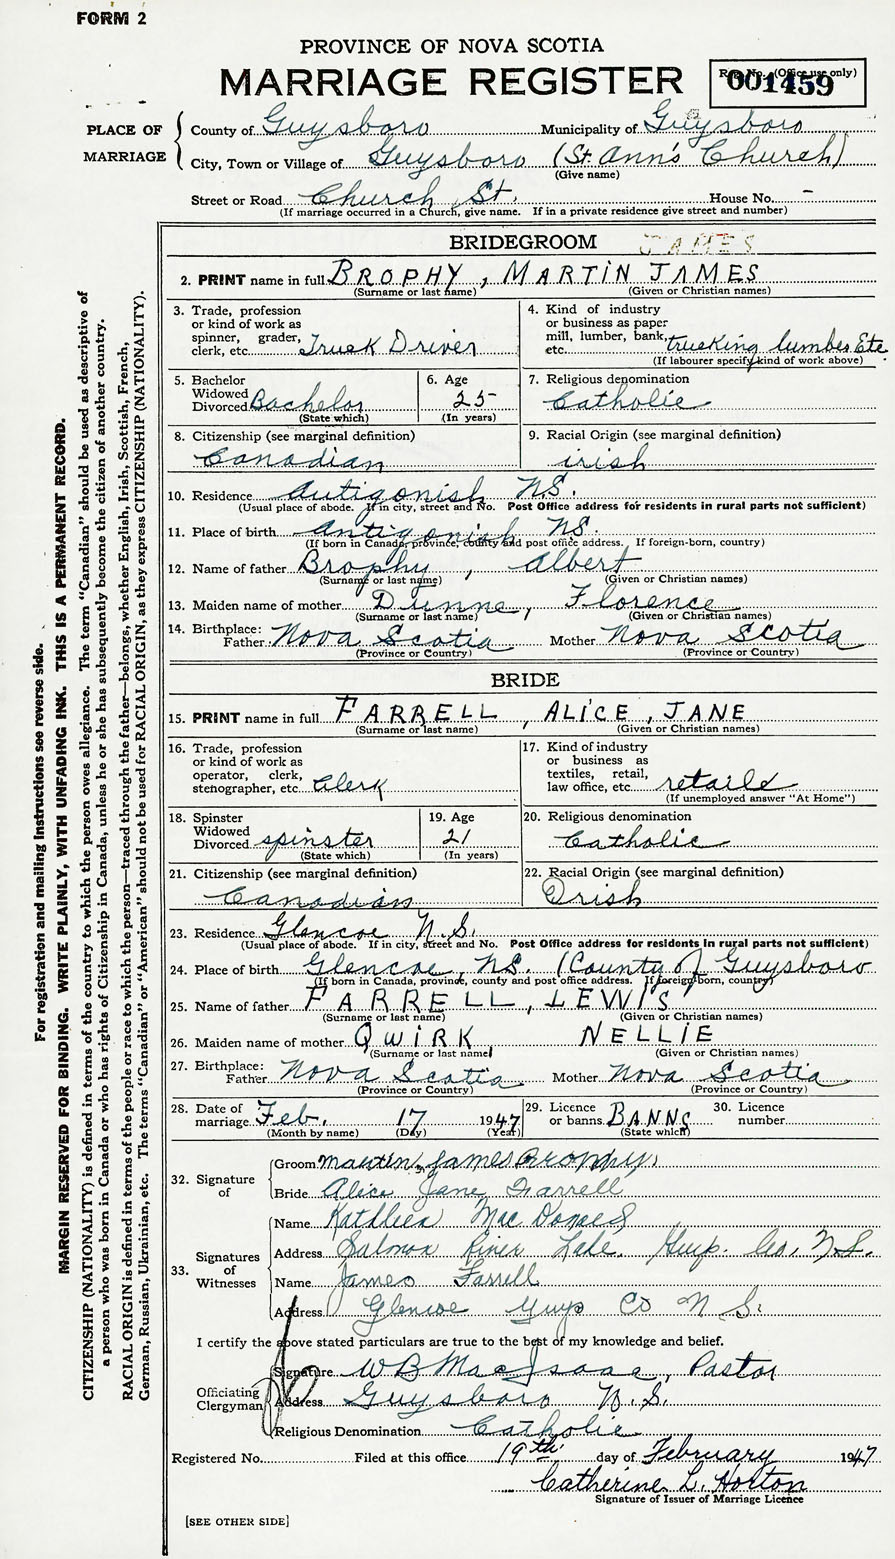 FORM 2
PROVINCE OF NOVA SCOTIA
MARRIAGE REGISTER
Reg. No. (Office use only)
001459
PLACE OF MARRIAGE
County of Guysboro Municipality of Guysboro
City, Town or Village of Guysboro (St. Ann's Church)
(Give name)
Street or Road Church St. House No. -
(If marriage occurred in a Church, give name. If in a private residence give street and number)
BRIDEGROOM JAMES
2. PRINT name in full BROPHY, MARTIN JAMES
(Surname or last name) (Given or Christian names)
3. Trade, profession or kind of work as spinner, grader, clerk, etc. Truck Driver
4. Kind of industry or business as paper mill, lumber, bank, etc. trucking lumber Etc.
(If labourer specify kind of work above)
5. Bachelor Widowed Divorced Bachelor
(State which)
6. Age 25
(In years)
7. Religious denomination
Catholic
8. Citizenship (see marginal definition)
Canadian
9. Racial Origin (see marginal definition)
irish
10. Residence Antigonish NS.
(Usual place of abode. If in city, street and No. Post Office address for residents in rural parts not sufficient)
11. Place of birth Antigonish NS.
(If born in Canada, province, county and post office address. If foreign-born, country)
12. Name of father Brophy, Albert
(Surname or last name) (Given or Christian names)
13. Maiden name of mother Dunne, Florence
(Surname or last name) (Given or Christian names)
14. Birthplace: Father Nova Scotia Mother Nova Scotia
(Province or Country) (Province or Country)
BRIDE
15. PRINT name in full FARRELL, ALICE, JANE
(Surname or last name) (Given or Christian names)
16. Trade, profession or kind of work as operator, clerk, stenographer, etc. Clerk
17. Kind of industry or business as textiles, retail, law office, etc. retail
(If unemployed answer "At Home")
18. Spinster Widowed Divorced spinster
(State which)
19. Age
21
(In years)
20. Religious denomination
Catholic
21. Citizenship (see marginal definition)
Canadian
22. Racial Origin (see marginal definition)
Irish
23. Residence Glencoe N.S.
(Usual place of abode. If in city, street and No. Post Office address for residents in rural parts not sufficient)
24. Place of birth Glencoe, NS. (County of Guysboro
(If born in Canada, province, county and post office address. If foreign-born, country)
25. Name of father FARRELL, LEWIS
(Surname or last name) (Given or Christian names)
26. Maiden name of mother QWIRK NELLIE
(Surname or last name) (Given or Christian names)
27. Birthplace: Father Nova Scotia Mother Nova Scotia
(Province or Country) (Province or Country)
28. Date of marriage Feb. 17 1947
(Month by name) (Day) (Year)
29. Licence or banns BANNS
(State which)
30. Licence number
32. Signature of
Groom Martin James Brophy
Bride Alice Jane Farrell
33. Signatures of Witnesses
Name Kathleen MacDonald
Address Salmon River Lake, Guys. Co. N.S.
Name James Farrell
Address Glencoe Guys Co N S.
I certify the above stated particulars are true to the best of my knowledge and belief.
Officiating Clergyman
Signature W B MacIsaac, Pastor
Address Guysboro N.S.
Religious Denomination Catholic
Registered No. Filed at this office 19th day of February 1947
Catherine L. Horton
Signature of Issuer of Marriage Licence
[SEE OTHER SIDE]
For registration and mailing instructions see reverse side.
MARGIN RESERVED FOR BINDING. WRITE PLAINLY, WITH UNFADING INK. THIS IS A PERMANENT RECORD.
CITIZENSHIP (NATIONALITY) is defined in terms of the country to which the person owes allegiance. The term "Canadian" should be used as descriptive of
a person who was born in Canada or who has rights of Citizenship in Canada, unless he or she has subsequently become the citizen of another country.
RACIAL ORIGIN is defined in terms of the people or race to which the person—traced through the father—belongs, whether English, Irish, Scottish, French,
German, Russian, Ukrainian, etc. The terms "Canadian" or "American" should not be used for RACIAL ORIGIN, as they express CITIZENSHIP (NATIONALITY).